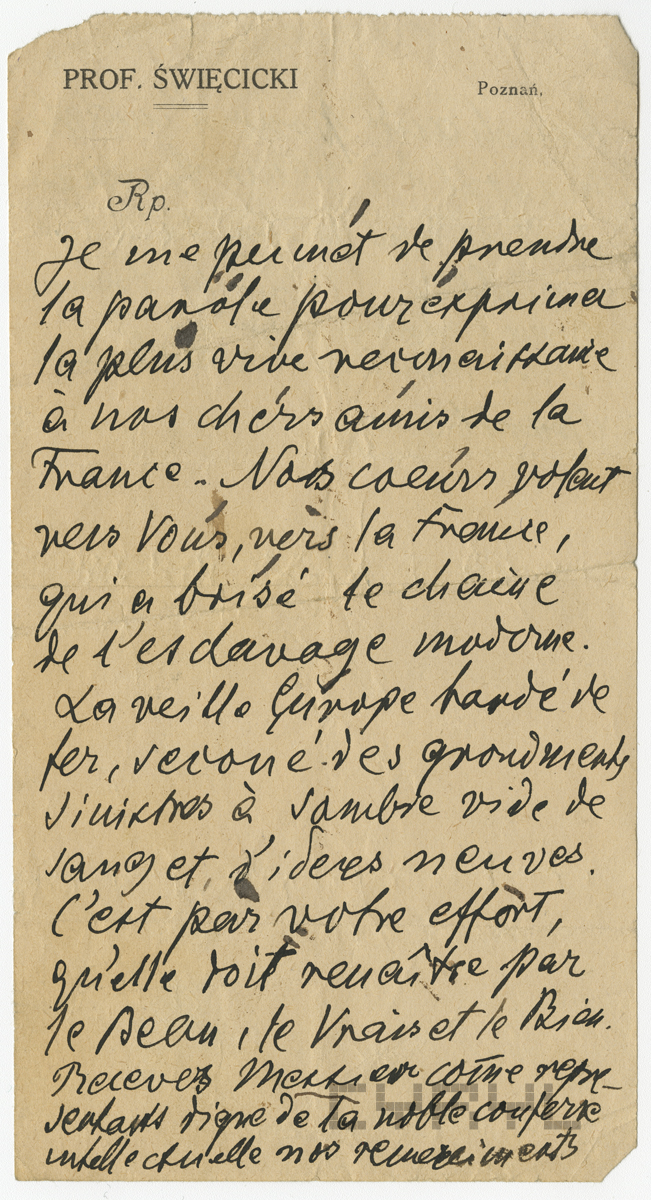 PROF. ŚWIĘCICKI
Poznań,
Rp.
Je me permét de prendre
la parole pour éxprima
la plus vive reconaissance
à nos chérs amis de la
France. Nos coeurs volent
vers Vous, vers la France,
qui a brisé le chaine
de l'esclavage moderne.
La veille Europe bardé de
fer, secoué des grondments
sinistres à sombre vide de
sang et d'idees neuves.
C'est par votre effort,
qu'elle doit renaître par
le Beau, le Vrais et le Bien.
Recevez Messieur come repre-
sentants digne de la noble
intellectuelle nos remerciments